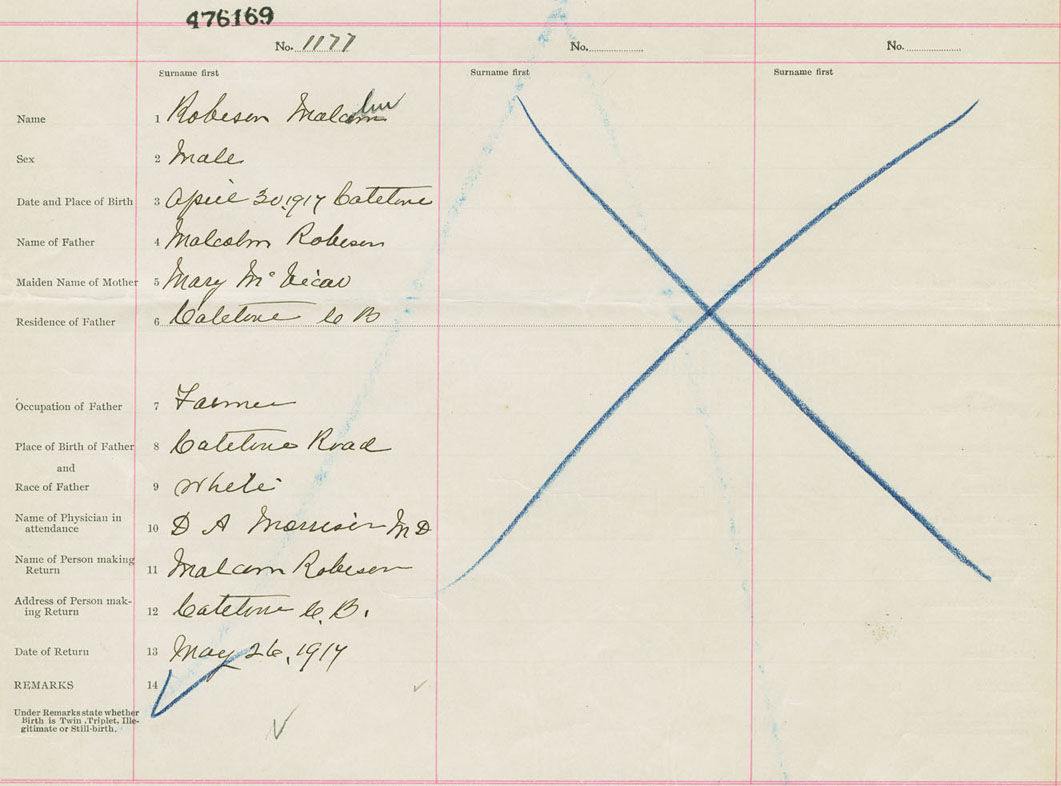 476169
No. 1177 No. No.
Surname first Surname first Surname first
Name 1 Robeson Malcolm
Sex 2 Male
Date and Place of Birth 3 April 30, 1917 Catelone
Name of Father 4 Malcolm Robeson
Maiden Name of Mother 5 Mary Mc Vicar
Residence of Father 6 Catelone C B
Occupation of Father 7 Farmer
Place of Birth of Father 8 Catelone Road
and
Race of Father 9 White
Name of Physician in
attendance 10 D A Morrison M D
Name of Person making
Return 11 Malcom Robeson
Address of Person mak-
ing Return 12 Catelone C. B.
Date of Return 13 May 26, 1917
REMARKS 14
Under Remarks state whether
Birth is Twin, Triplet, Ille-
gitimate or Still-birth.